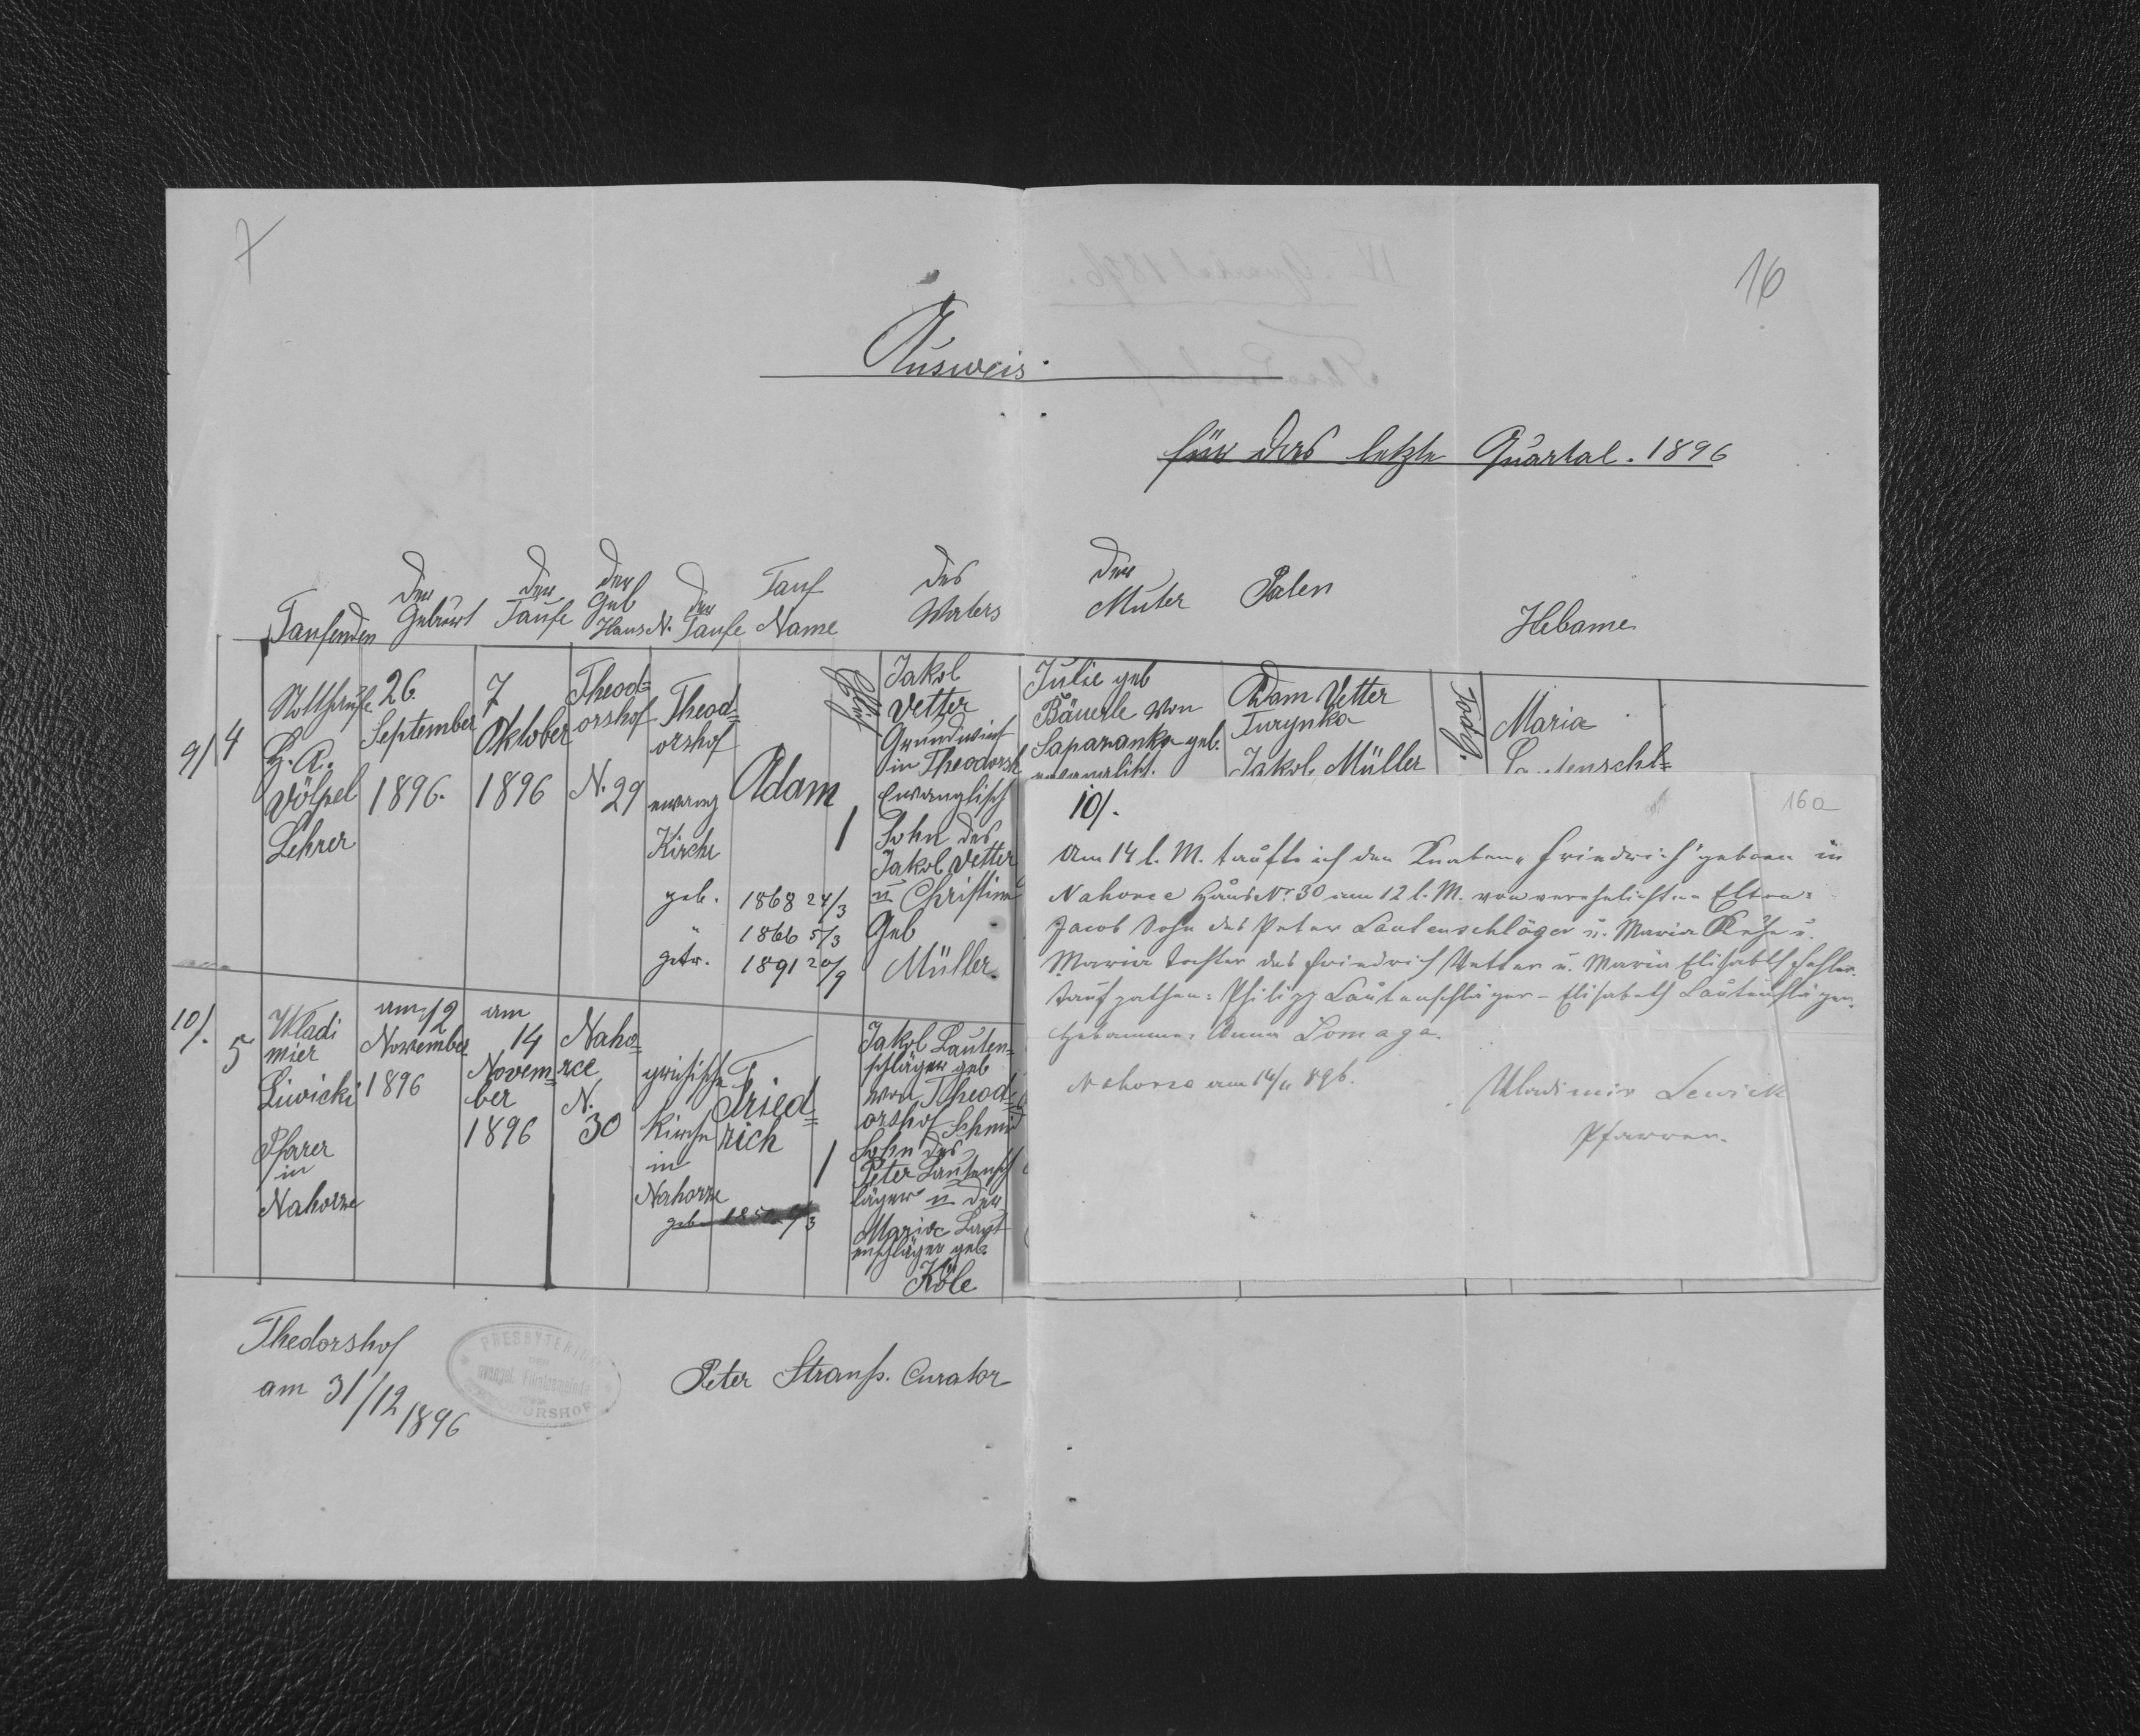 16
Ausweis
für das letzte Quartal. 1896
Taufenden
der Geburt
der Taufe
der Geb Haus N.
der Taufe
Tauf Name
des Waters
der Muter
Paten
Hebame
9/ 4
Nothtaufe
H. A.
Völpel
Lehrer
26.
September
1896.
7
Oktober
1896
Theod=
orshof
N. 29
Theod=
orshof
ewang
Kirche
Adam
geb. 1868 24/3
" 1866 5/3
getr. 1891 20/9
Jakob
Vetter
Grundwirt
in Theodorsh
Ewanglisch
Sohn des
Jakob Vetter
u Christine
Geb
Müller.
Julie geb
Bäuerle von
Saparanka geb.
Adam Vetter
Turynka
Jakob Müller
Maria
Lautenschl=
10/. 5
Wladi
mier
Liwicki
Pfarer
in
Nahorze
am 12
November
1896
am
14
Novem=
ber
1896
Naho=
rce
N.
30
grichische
Kirche
in
Nahorze
Fried=
rich
Jakob Lauten=
schläger geb
von Theod=
orshof Schmid
Sohn des
Peter Lautensch
läger u der
Marie Laut
enschläger geb.
Köle
10/.
16a
Am 14 l. M. taufte ich den Knaben „Friedrich" geboren in
Nahorce Haus Nr. 30 am 12 l. M. von verehelichten Eltern:
Jacob Sohn des Peter Lautenschläger u. Maria Kühe u.
Maria Tochter des Friedrich Vetter u. Maria Elisabeth
Taufpathen: Philipp Lautenschläger – Elisabeth Lautenschläger.
Hebamme: Anna Lomaga.
Nahorce am 14/11 896.
Wladimir Lewicki
Pfarrer.
Thedorshof
am 31/12 1896
PRESBYTERIUM
DER
evangel. Filialgemeinde
THEODORSHOF
Peter Strauß. Curator